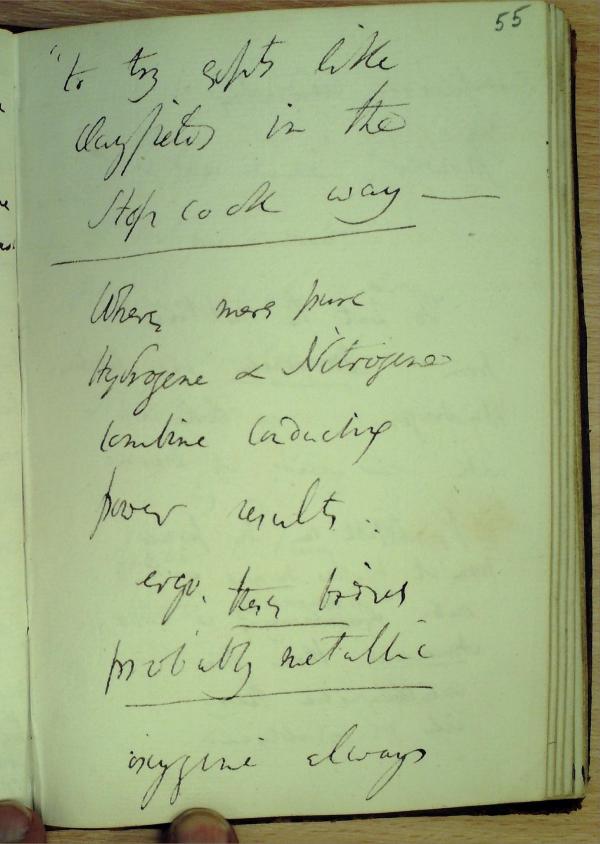 55
"to try expts like
Clayfield's in the
Stop cock way —
Where mere pure
Hydrogene & Nitrogene
combine conducting
power results.
ergo. these bodies
probably metallic
oxygene always